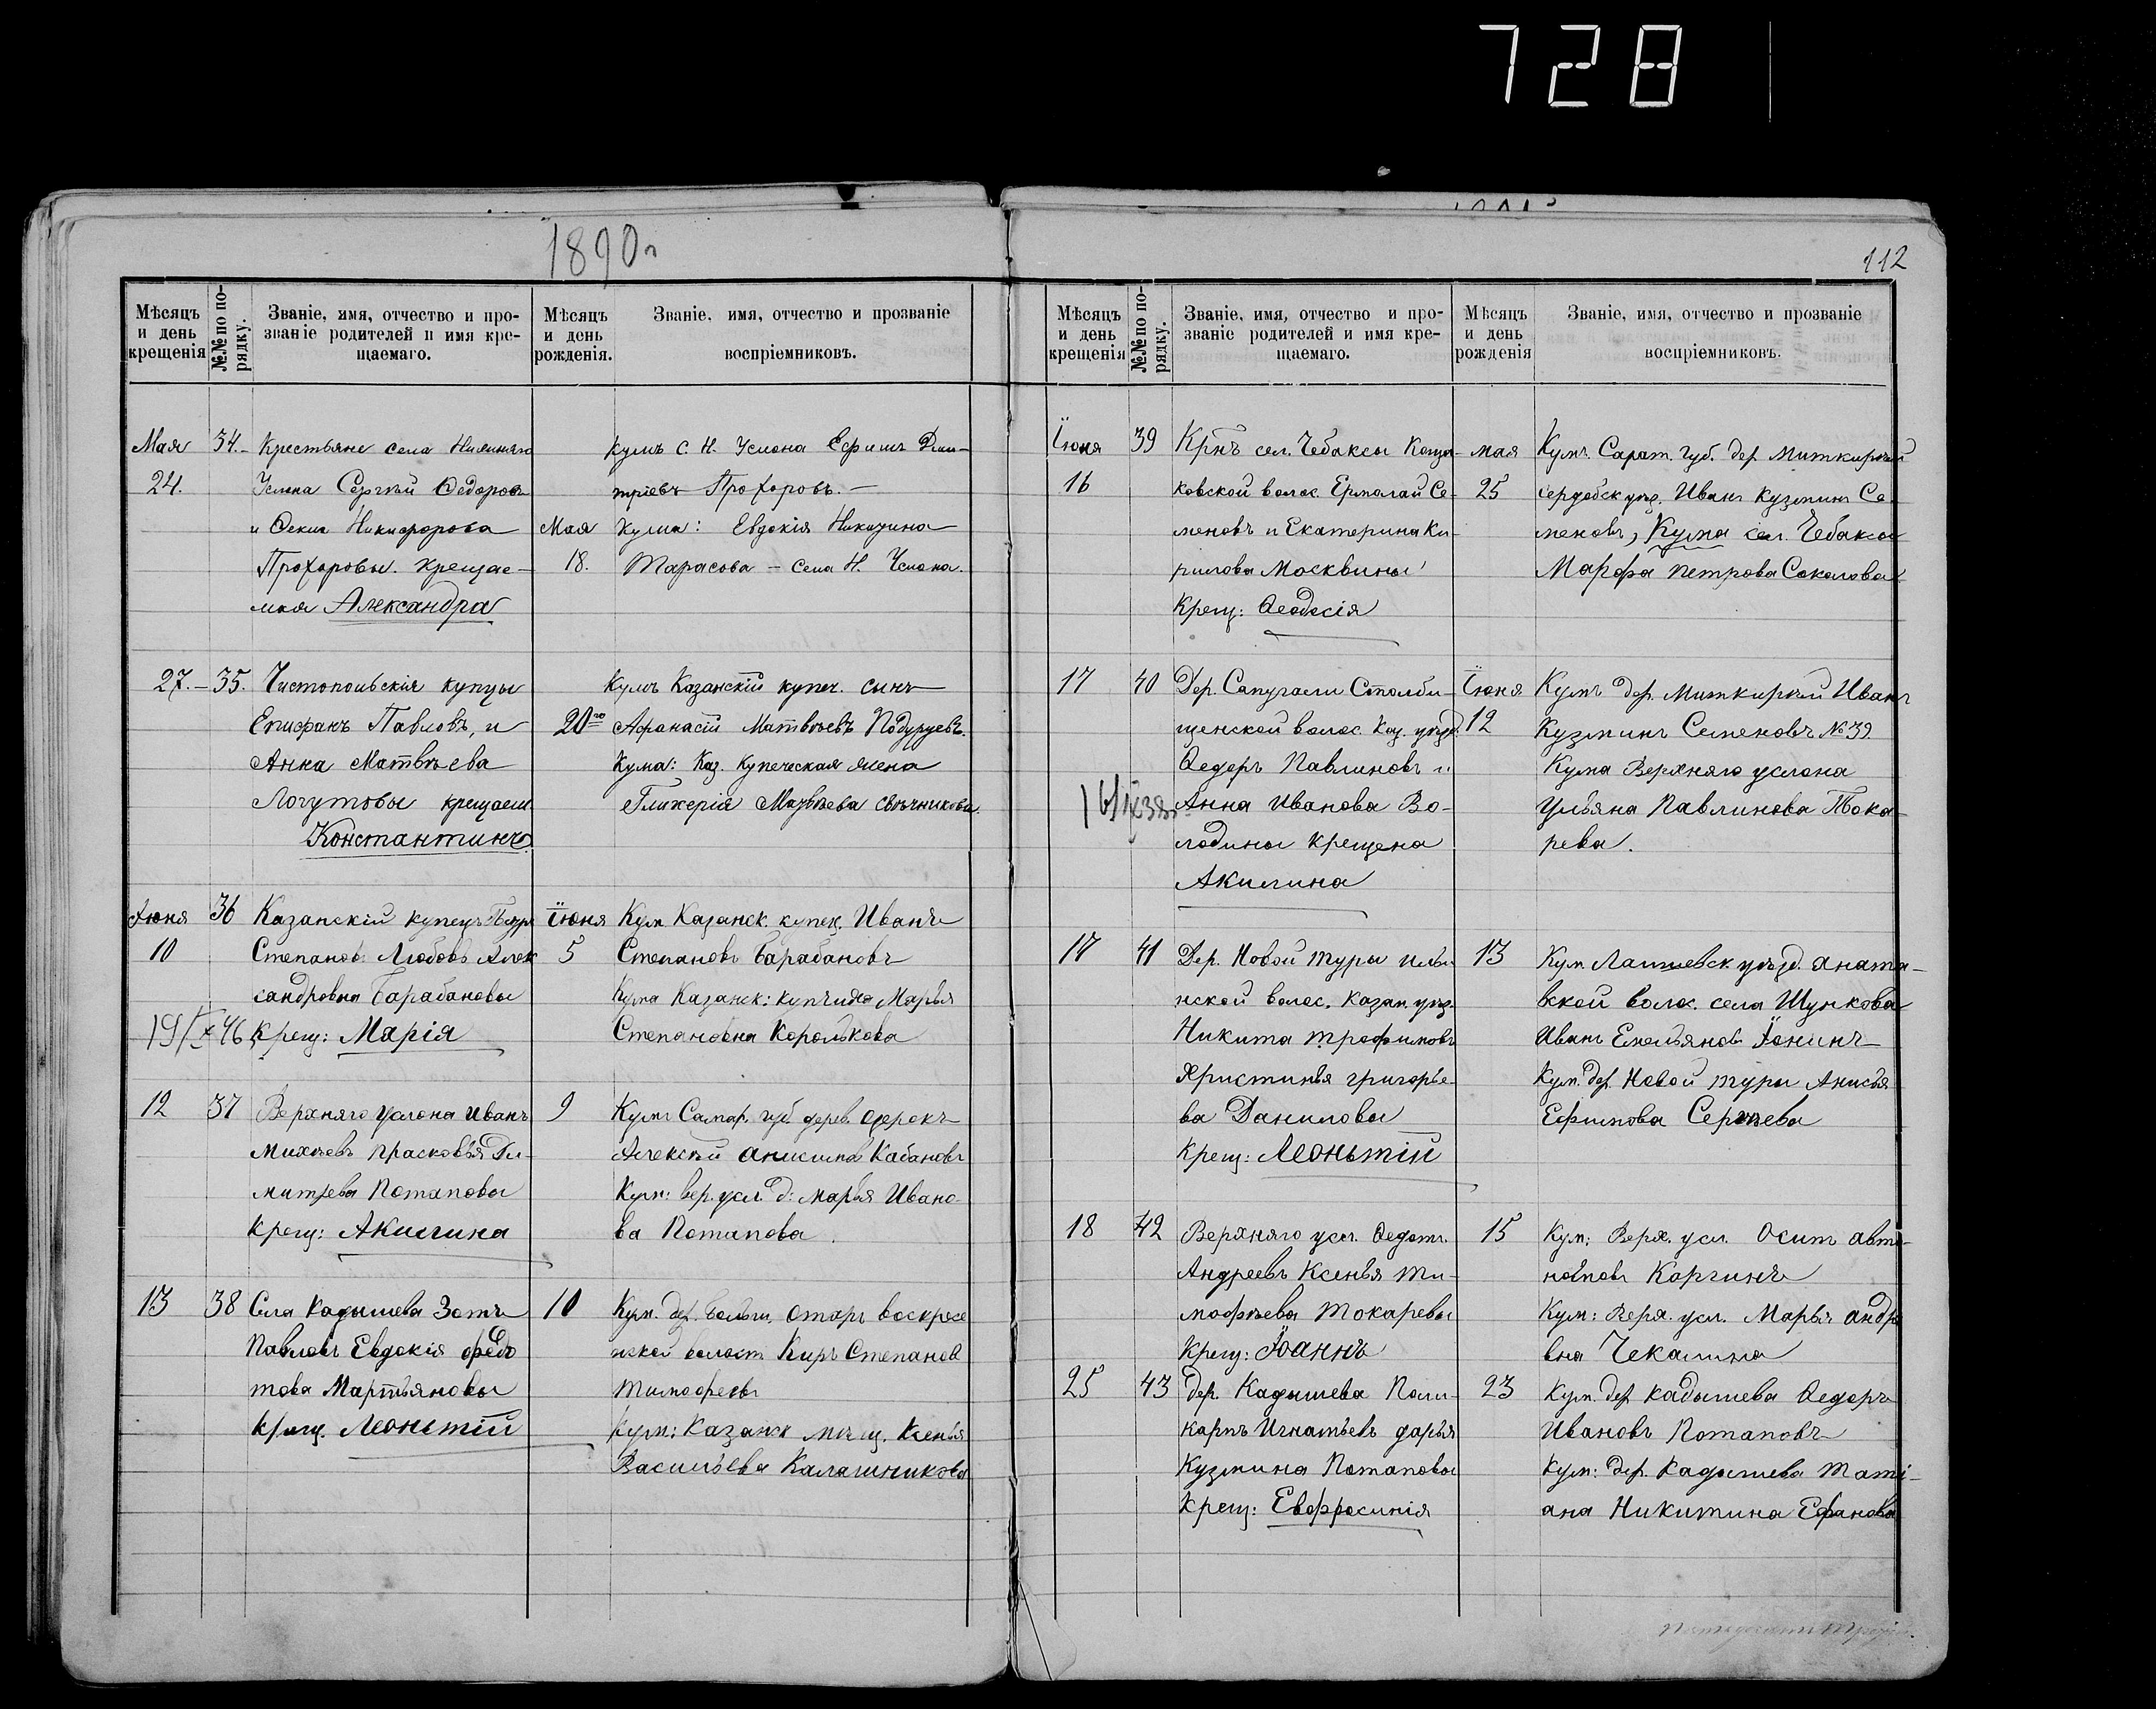 728
1890 г
112
Мѣсяцъ и день крещенія
№№ по порядку.
Званіе, имя, отчество и прозваніе родителей и имя крещаемаго.
Мѣсяцъ и день рожденія.
Званіе, имя, отчество и прозваніе воспріемниковъ.
Мая 34. Крестьяне села Нижняго
24. Услона Сергѣй Ѳедоровъ
и Ѳекла Никифорова
Прохоровы. Крещае-
мая Александра
Мая
18.
Кумъ с. Н. Услона Ефимъ Дми-
тріевъ Прохоровъ. —
Кума: Евдокія Никитина
Тарасова — села Н. Услона.
27. — 35. Чистопольскія купцы
Епифанъ Павловъ, и
Анна Матвѣева
Логутовы крещаем
Константинъ
20го
Кумъ Казанскій купеч. сынъ
Афанасій Матвѣевъ Подуруевъ.
Кума: Каз. Купеческая жена
Гликерія Матвѣева Свѣчникова.
Іюня 36 Казанскій купецъ Петръ
10 Степанов. Любовь Алек
сандровна Барабановы
Крещ: Марія
19/X 46
Іюня
5
Кум Казанск. купец. Иванъ
Степановъ Барабановъ
Кума Казанск: купчиха Марья
Степановна Королькова
12 37 Верхняго Услона Иванъ
Михѣевъ Прасковья Ди-
митрева Потаповы
Крещ: Акилина
9
Кумъ Самар. губ. дерев.
Алексѣй Анисимов Кабановъ
Кум: вер. усл. д: Марья Ивано-
ва Потапова.
13 38 Села Кадышева Зотъ
Павловъ Евдокія Федо
това Мартьяновы
Крещ. Леоньтій
10
Кум. дер. Больш. Отаръ Воскресе
нской волост. Киръ Степанов
Тимофеевъ
Кум: Казанск мѣщ. Ксенья
Васильева Калашникова
Мѣсяцъ и день крещенія
№№ по порядку.
Званіе, имя, отчество и прозваніе родителей и имя крещаемаго.
Мѣсяцъ и день рожденія
Званіе, имя, отчество и прозваніе воспріемниковъ.
Іюня 39 Крнъ сел. Чебаксы Каца-
16 ковской волос. Ермолай Се-
меновъ и Екатерина Ки-
рилова Москвины
Крещ: Ѳеодосія
мая
25
Кумъ Сарат. Губ. дер. Миткирѣй
сердобск уѣз. Иванъ Кузминъ Се-
меновъ, Кума сел. Чебаксы
Марфа Петрова Соколова
17 40 Дер. Сапугами Столби-
щенской волос. Каз. уѣзд.
Ѳедоръ Павлиновъ и
Анна Иванова Во-
лодины крещена
Акилина
Іюня
12
Кумъ дер. Миткирѣй Иванъ
Кузминъ Семеновъ № 39
Кума Верхняго услона
Ульяна Павлинова Тока-
рева.
17 41 Дер. Новой Туры Ильи-
нской волос. Казан. уѣз.
Никита Трофимовъ
Христинья Григорье-
ва Даниловы
Крещ: Леоньтій
13
Кум. Лаишевск. уѣзд. Аната-
вской волос. села Шункова
Иванъ Емельянов Іонинъ
Кум. дер. Новой Туры Анисья
Ефимова Сергѣева
18 42 Верхняго усл. Ѳедотъ
Андреевъ Ксенья Ти-
мофѣева Токаревы
Крещ: Іоаннъ
15
Кум: Верх. усл. Осипъ Авто-
номовъ Каргинъ
Кум: Верх. усл. Марья Андре
вна Чекалина
25 43 дер. Кадышева Поли-
карпъ Игнатьевъ Дарья
Кузмина Потаповы
Крещ: Евфросинія
23
Кум. дер. Кадышева Ѳедоръ
Ивановъ Потаповъ
Кум: дер. Кадышева Таті-
ана Никитина Ефанова